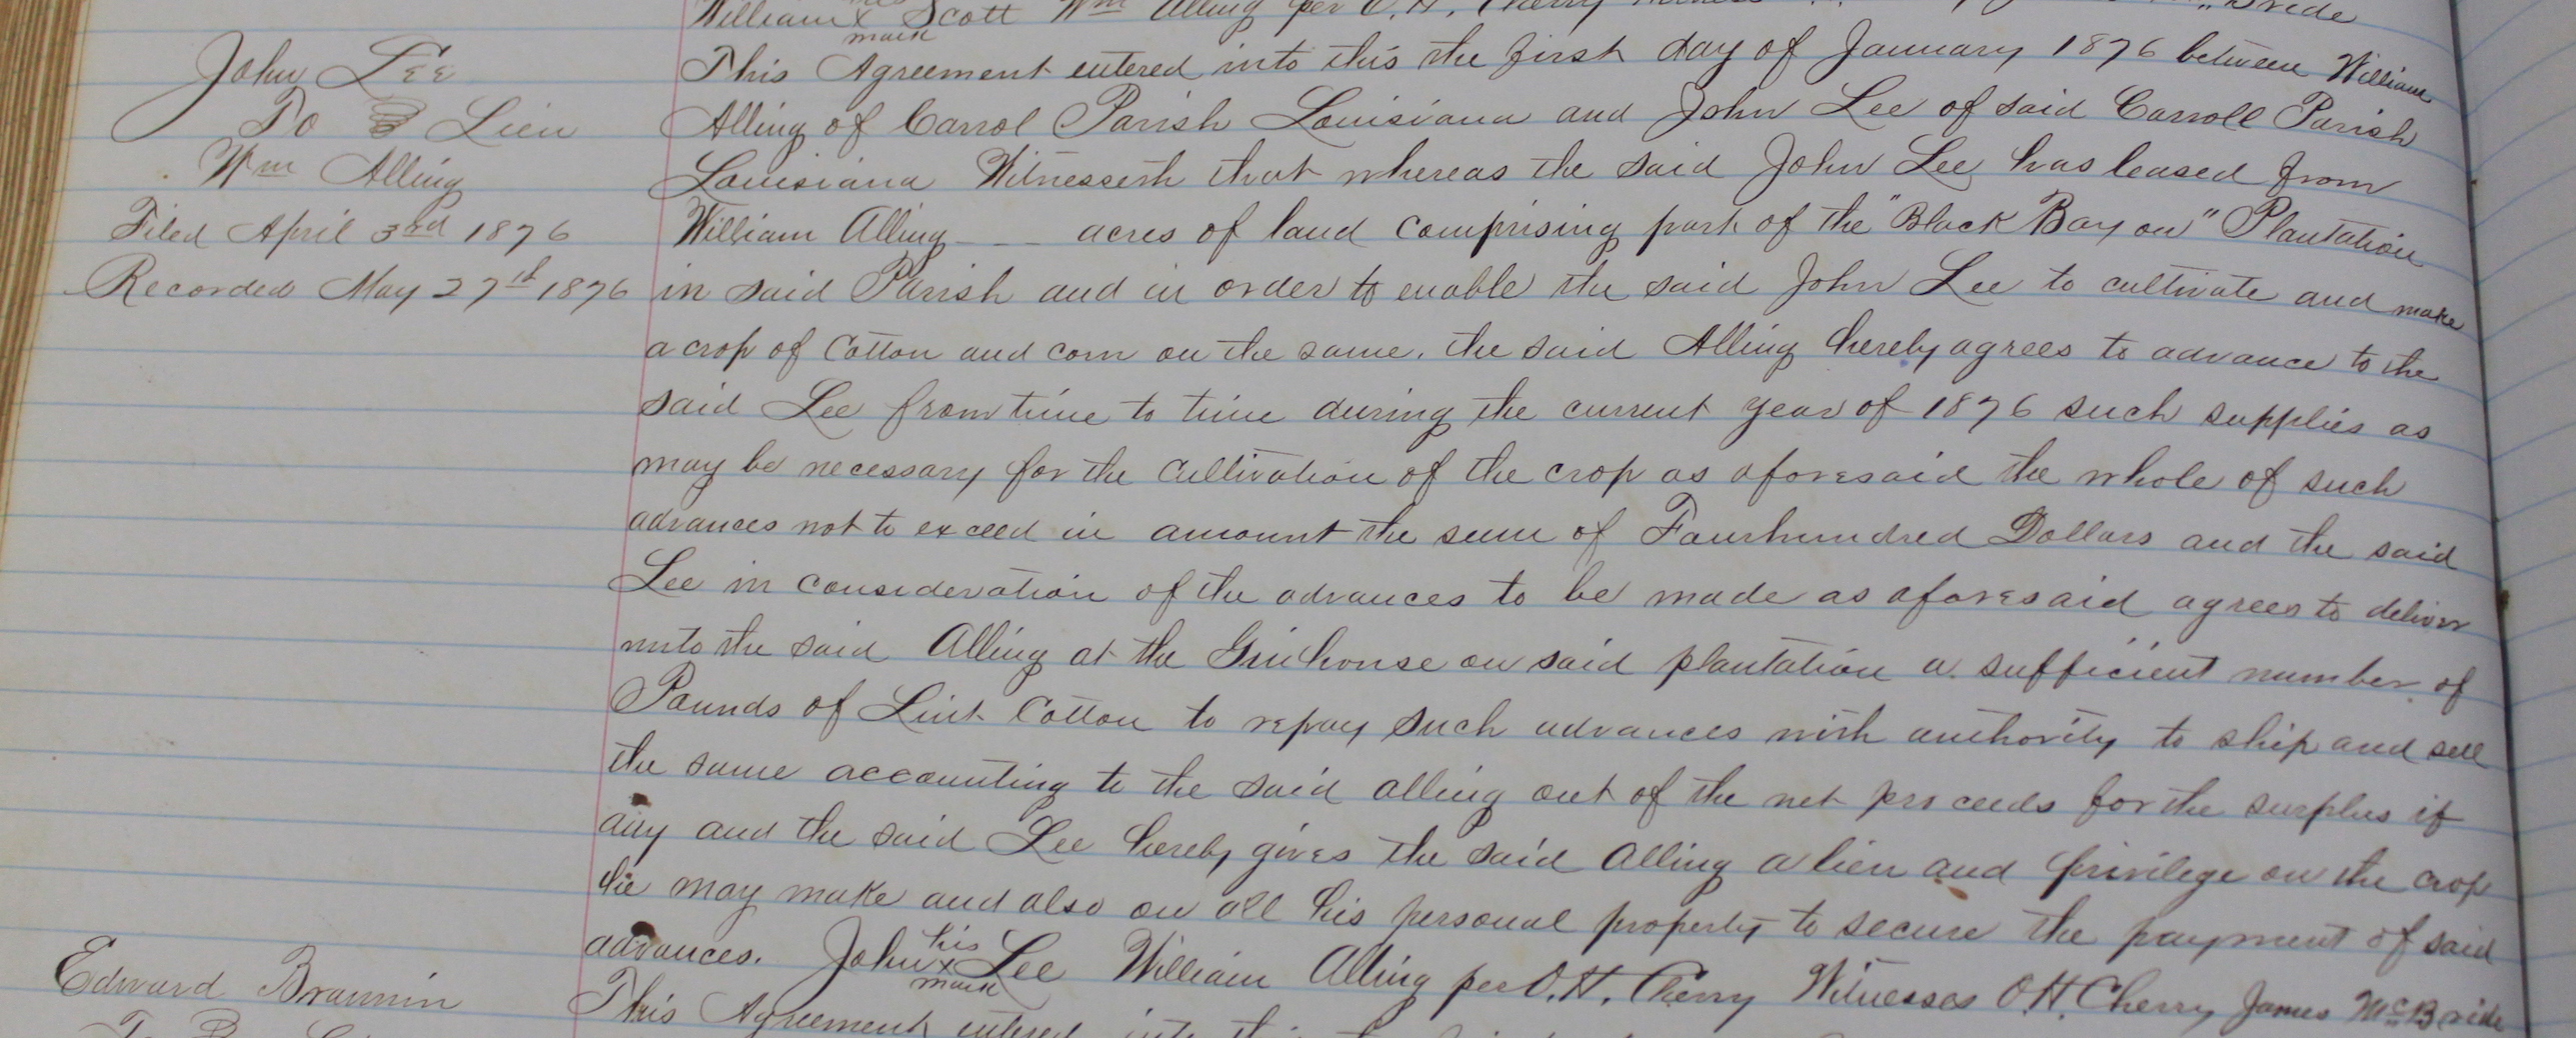 William x Scott Wm Alling per O. H. Cherry
mark
John Lee
To Lien
Wm Alling
Filed April 3rd 1876
Recorded May 27th 1876
This Agreement entered into this the first day of January 1876 between William
Alling of Carrol Parish Louisiana and John Lee of said Carroll Parish
Louisiana Witnesseth that whereas the said John Lee has leased from
William Alling - - - acres of land comprising part of the "Black Bayou" Plantation
in said Parish and in order to enable the said John Lee to cultivate and make
a crop of Cotton and corn on the same, the said Alling hereby agrees to advance to the
said Lee from time to time during the current year of 1876 such supplies as
may be necessary for the cultivation of the crop as aforesaid the whole of such
advances not to exceed in amount the sum of Fourhundred Dollars and the said
Lee in consideration of the advances to be made as aforesaid agrees to deliver
unto the said Alling at the Ginhouse on said plantation a sufficient number of
Pounds of Lint Cotton to repay such advances with authority to ship and sell
the same accounting to the said Alling out of the net proceeds for the surplus if
any and the said Lee hereby gives the said Alling a lien and privilege on the crop
he may make and also on all his personal property to secure the payment of said
advances. John his x mark Lee William Alling per O. H. Cherry Witnesses O. H. Cherry James McBride
Edward Brannin
This Agreement entered into